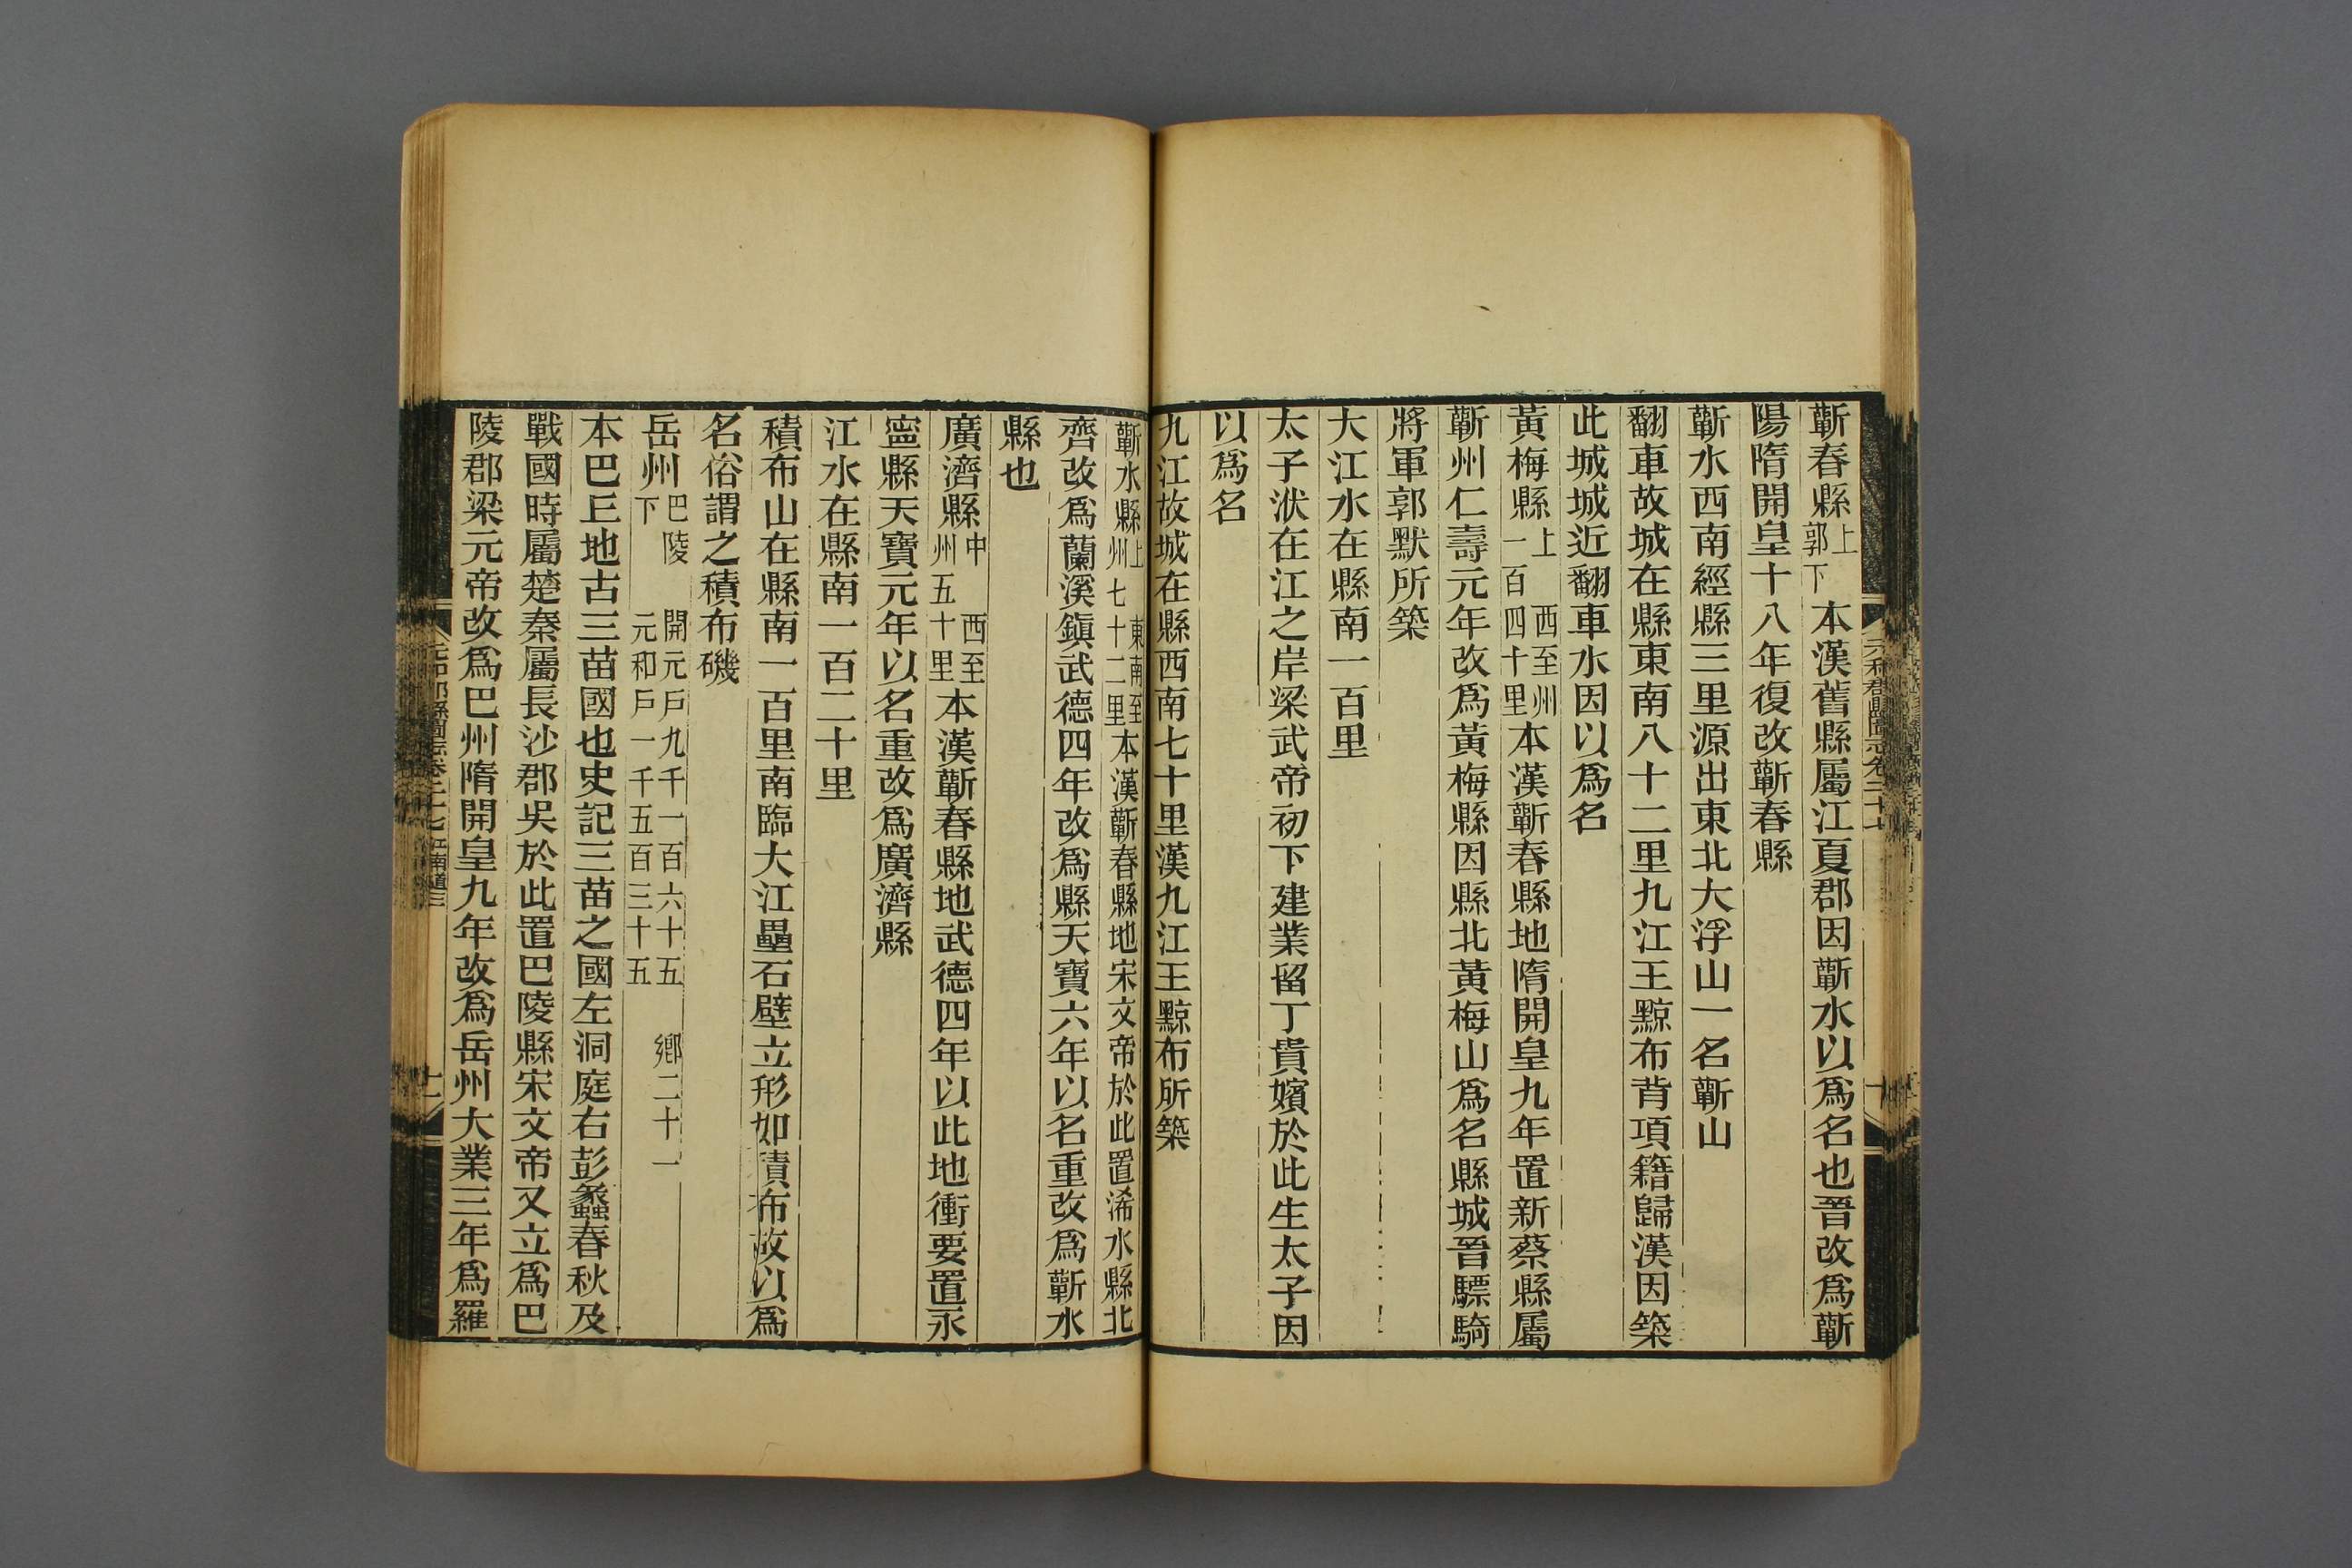 蘄春縣上郭下本漢舊縣屬江夏郡因蘄水以爲名也晉改爲蘄
陽隋開皇十八年復改蘄春縣
蘄水西南經縣三里源出東北大浮山一名蘄山
翻車故城在縣東南八十二里九江王黥布背項籍歸漢因築
此城城近翻車水因以爲名
黃梅縣上西至州一百四十里本漢蘄春縣地隋開皇九年置新蔡縣屬
蘄州仁壽元年改爲黃梅縣因縣北黃梅山爲名縣城晉驃騎
將軍郭默所築
大江水在縣南一百里
太子洑在江之岸梁武帝初下建業留丁貴嬪於此生太子因
以爲名
九江故城在縣西南七十里漢九江王黥布所築
蘄水縣上東南至州七十二里本漢蘄春縣地宋文帝於此置浠水縣北
齊改爲蘭溪鎮武德四年改爲縣天寶六年以名重改爲蘄水
縣也
廣濟縣中西至州五十里本漢蘄春縣地武德四年以此地衝要置永
寧縣天寶元年以名重改爲廣濟縣
江水在縣南一百二十里
積布山在縣南一百里南臨大江壘石壁立形如積布故以爲
名俗謂之積布磯
岳州巴陵下開元戶九千一百六十五鄉二十一元和戶一千五百三十五
本巴丘地古三苗國也史記三苗之國左洞庭右彭蠡春秋及
戰國時屬楚秦屬長沙郡吳於此置巴陵縣宋文帝又立爲巴
陵郡梁元帝改爲巴州隋開皇九年改爲岳州大業三年爲羅
元和郡縣圖志卷二十七江南道三
十一